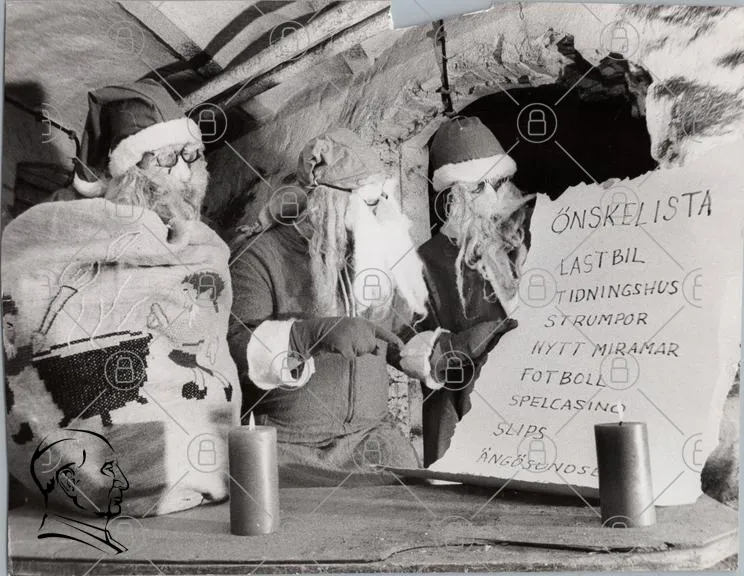 ÖNSKELISTA
LASTBIL
TIDNINGSHUS
STRUMPOR
NYTT MIRAMAR
FOTBOLL
SPELCASINO
SLIPS